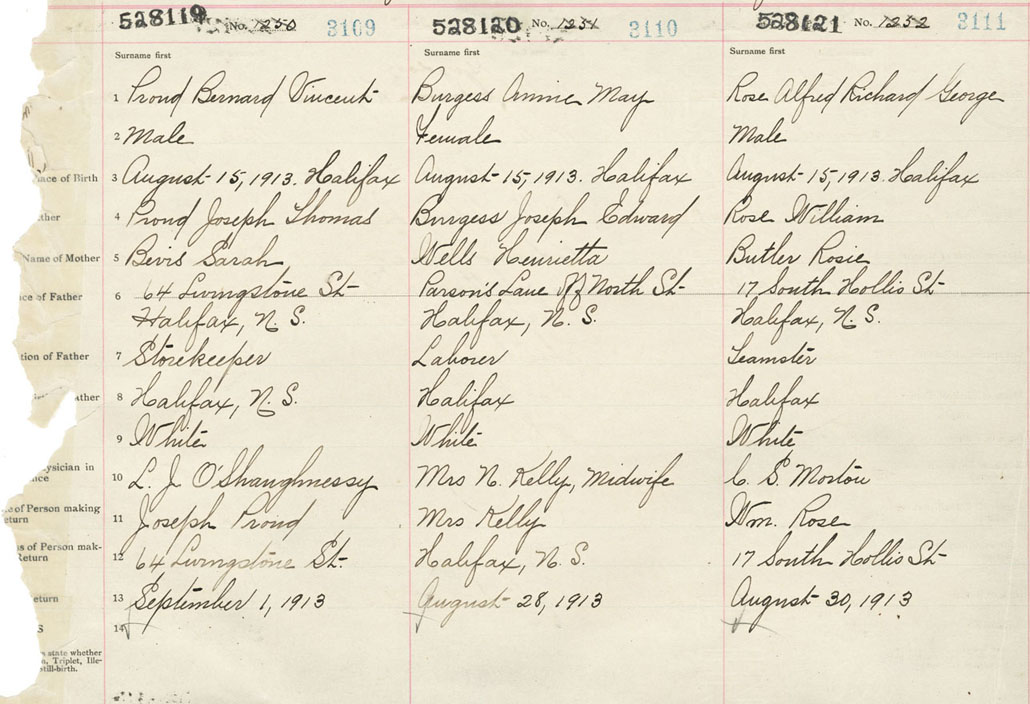 528119 No. 1250 3109
528120 No. 1251 3110
528121 No. 1252 3111
Surname first
Surname first
Surname first
1 Proud Bernard Vincent
Burgess Annie May
Rose Alfred Richard George
2 Male
Female
Male
lace of Birth 3 August 15, 1913. Halifax
August 15, 1913. Halifax
August 15, 1913. Halifax
ther 4 Proud Joseph Thomas
Burgess Joseph Edward
Rose William
Name of Mother 5 Bevis Sarah
Wells Henrietta
Butler Rosie
ce of Father 6 64 Livingstone St
Parson's Lane off North St
17 South Hollis St
Halifax, N. S.
Halifax, N. S.
Halifax, N. S.
tion of Father 7 Storekeeper
Laborer
Teamster
ather 8 Halifax, N. S.
Halifax
Halifax
9 White
White
White
ysician in
nce
10 L. J. O'Shaughnessy
Mrs N. Kelly, Midwife
C. S. Morton
e of Person making
eturn
11 Joseph Proud
Mrs Kelly
Wm. Rose
s of Person mak-
Return
12 64 Livingstone St.
Halifax, N. S.
17 South Hollis St
eturn 13 September 1, 1913
August 28, 1913
August 30, 1913
S 14
state whether
n, Triplet, Ille-
still-birth.